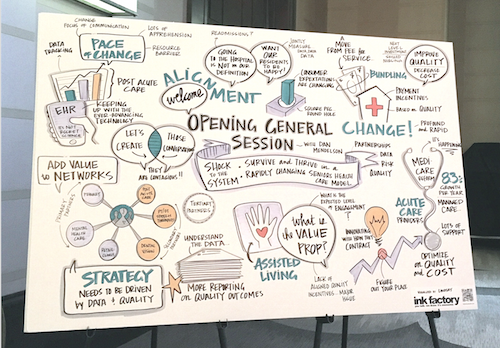 CHANGE
FOCUS OF COMMUNICATION
LOTS OF
APPREHENSION
DATA
TRACKING
PACE
of CHANGE
RESOURCE
BARRIER
READMISSIONS?
GOING
TO THE HOSPITAL
IS NOT IN OUR
DEFINITION
WANT
OUR
RESIDENTS
TO BE
HAPPY!
JOINTLY
MEASURE
DATA
A
MOVE
FROM FEE for
SERVICE
NEXT
LEVEL
IMPROVE
QUALITY
DECREASE
COST
POST ACUTE
CARE
EHR
KEEPING
UP WITH THE
EVER-ADVANCING
TECHNOLOGY
ALIGNMENT
welcome
CONSUMER
EXPECTATIONS
ARE CHANGING
SQUARE PEG
ROUND HOLE
BUNDLING
PAYMENT
INCENTIVES
BASED ON QUALITY
OPENING GENERAL
SESSION
WITH DAN
MENDELSON
CHANGE!
PROFOUND
AND RAPID
LET'S
CREATE
THOSE
CONVERSATIONS
THEY
ARE CONTAGIOUS!!
SHOCK
TO THE
SYSTEM
SURVIVE AND THRIVE IN A
RAPIDLY CHANGING SENIORS HEALTH
CARE MODEL
PARTNERSHIPS
DATA
RISK
QUALITY
IT'S
HAPPENING
MEDI
CARE
83%
GROWTH PER
YEAR
MANAGED
CARE
LOTS OF
SUPPORT
ADD VALUE
TO NETWORKS
PRIMARY
POST
ACUTE
CARE
MENTAL
HEALTH
CARE
TERTIARY
PARTNERS
WHAT IS
THE EXPECTED
LEVEL OF
ENGAGEMENT
?
what is
the VALUE
PROP?
INNOVATING
WITH HOW THEY
CONTRACT
ACUTE
CARE
PROVIDERS
UNDERSTAND
THE DATA
ASSISTED
LIVING
OPTIMIZE
ON QUALITY
and COST
STRATEGY
NEEDS TO BE DRIVEN
by DATA & QUALITY
MORE REPORTING
ON QUALITY OUTCOMES
LACK OF
ALIGNED QUALITY
INCENTIVES
MAJOR
ISSUE
FIGURE
OUT YOUR PLACE
ink factory